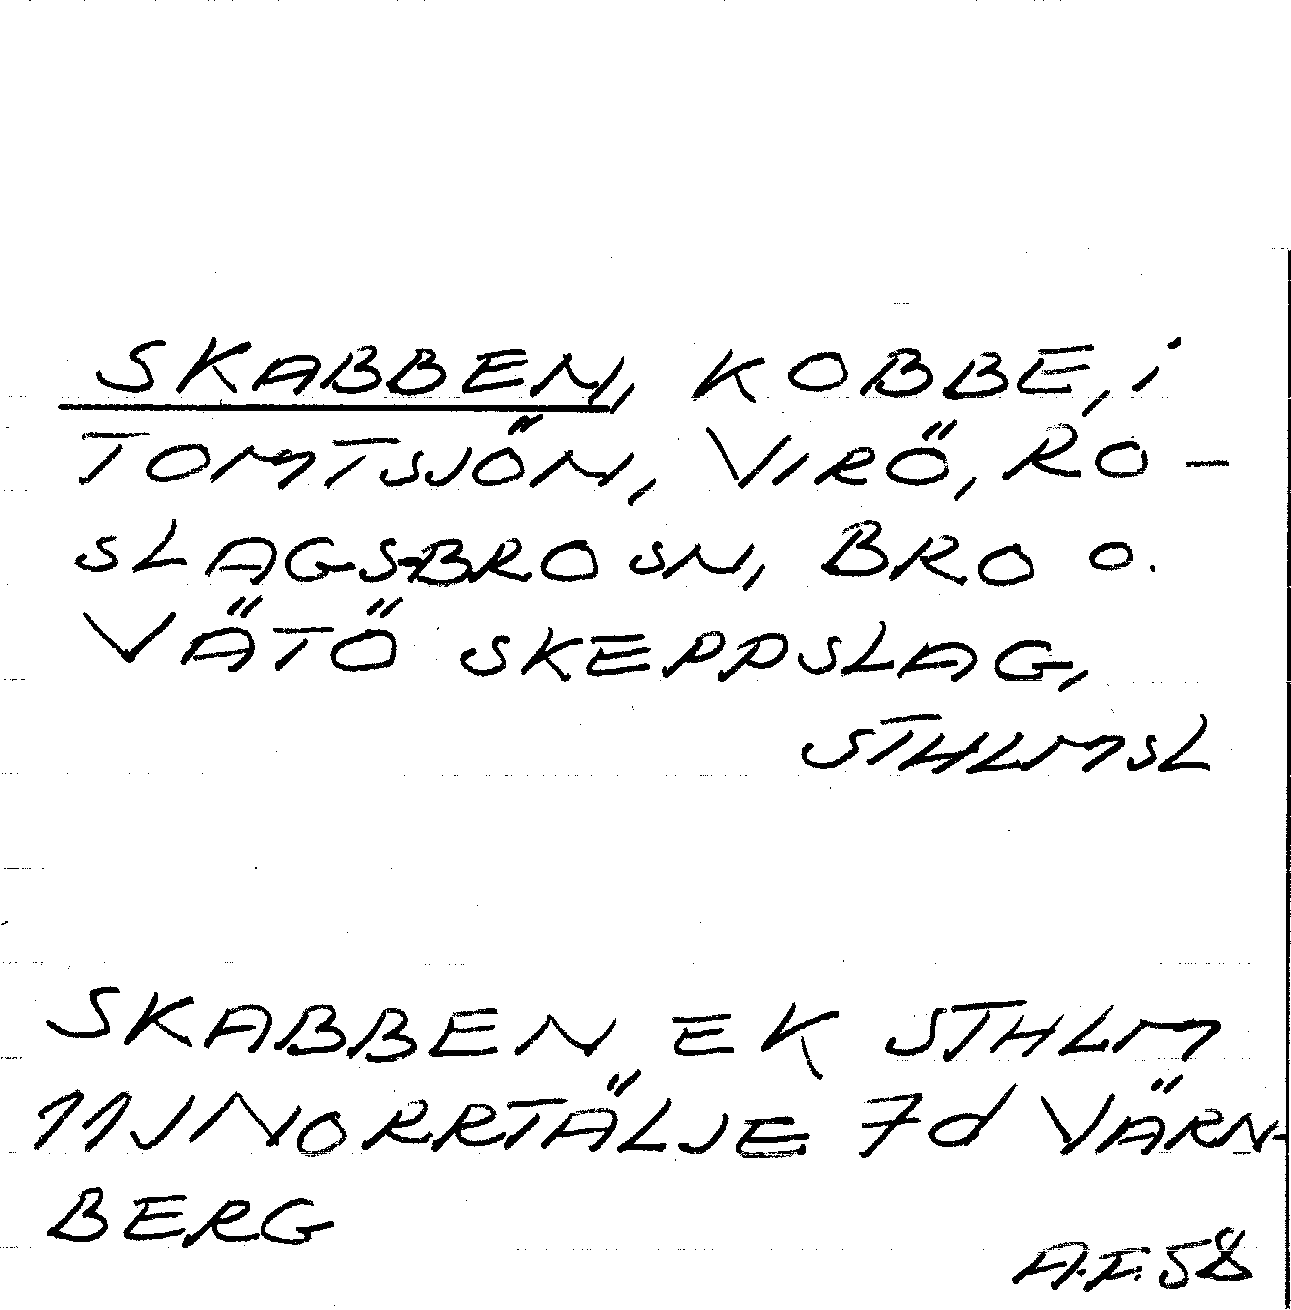 SKABBEN, KOBBE, i
TOMTSJÖN, VIRÖ, RO-
SLAGSBRO SN, BRO O.
VÄTÖ SKEPPSLAG,
STHLMSL
SKABBEN EK STHLM
11J NORRTÄLJE 7d VÄRN-
BERG
A.F.58